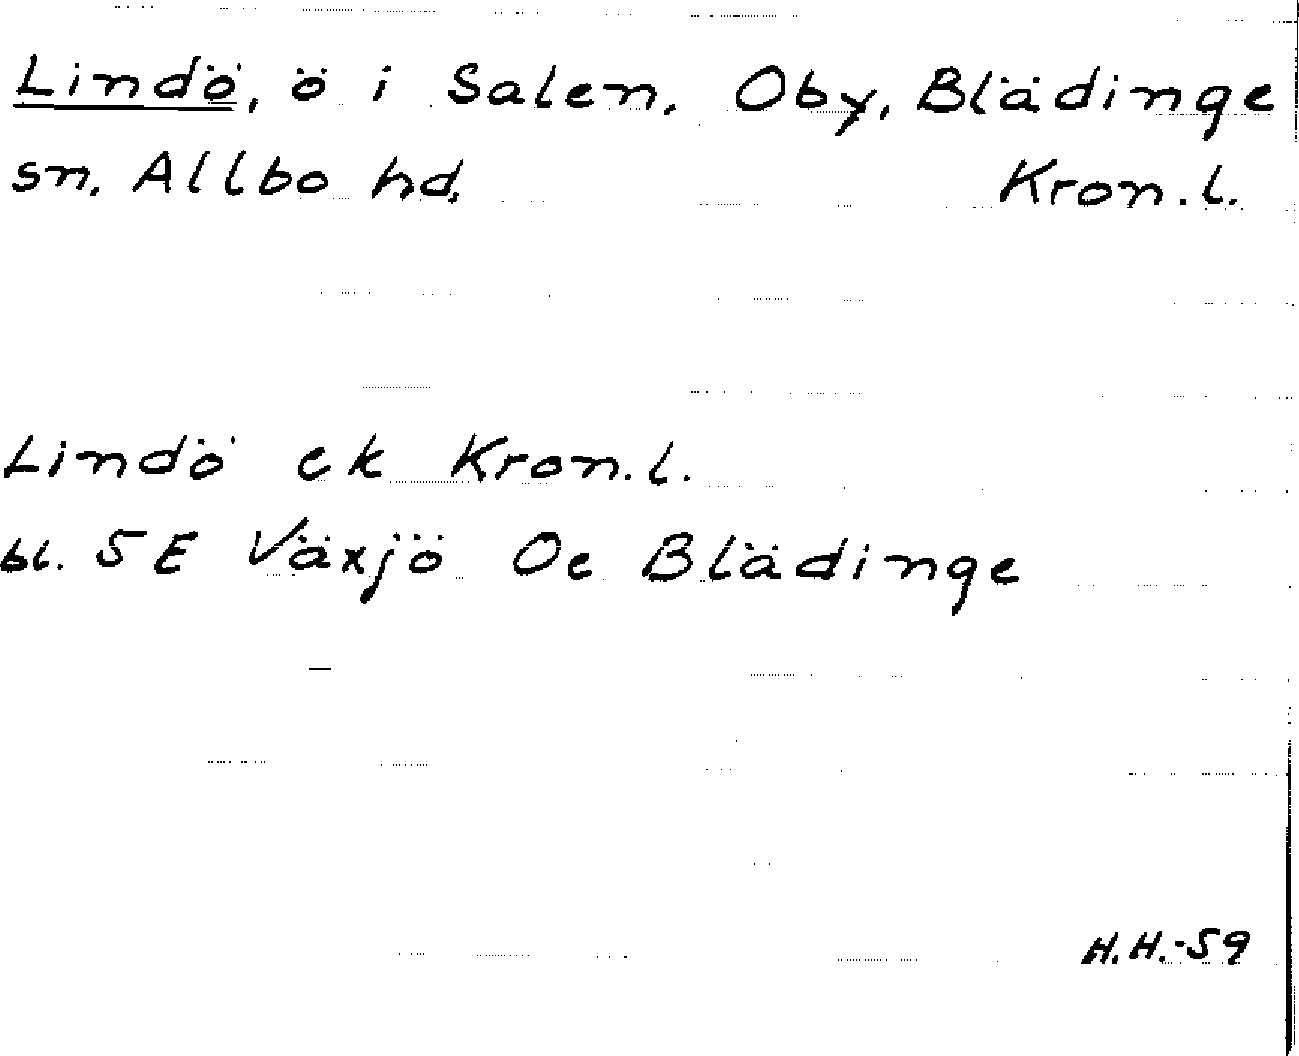 Lindö, ö i Salen, Oby, Blädinge
sn. Allbo hd. Kron.l.
Lindö ek Kron.l.
bl. 5E Växjö Oe Blädinge
H.H.-59